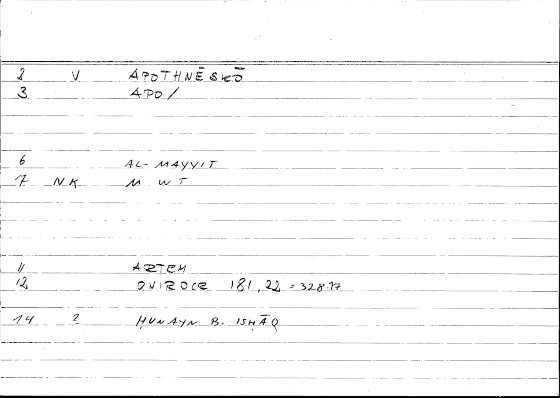 2 V APOTHNĒSKŌ
3 APO/
6 AL-MAYYIT
7 NK M W T
11 ARTEM
12 ONIROCR 181,22 = 328.17
14 2 ḤUNAYN B. ISḤĀQ